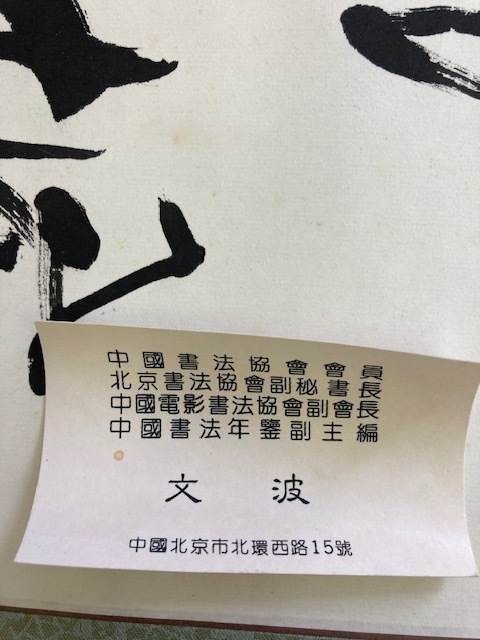 中國書法協會會員
北京書法協會副秘書長
中國電影書法協會副會長
中國書法年鑒副主編
文波
中國北京市北環西路15號